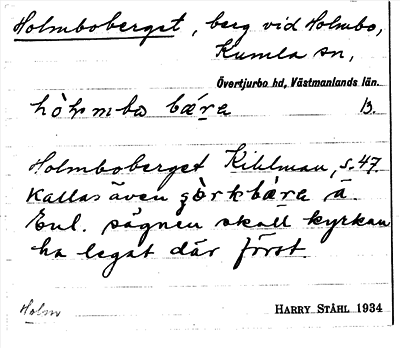 Holmboberget, berg vid Holmbo,
Kumla sn,
Övertjurbo hd, Västmanlands län.
hòḷmbo bæ̀ra B.
Holmboberget Kihlman, s. 47
Kallas även gòrkbæ̀ra ä.
Enl. sägnen skall kyrkan
ha legat där först.
Holm
HARRY STÅHL 1934